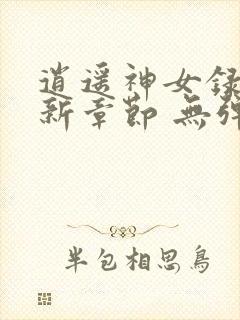 逍遥神女録
新章節 無彈
半包相思鳥